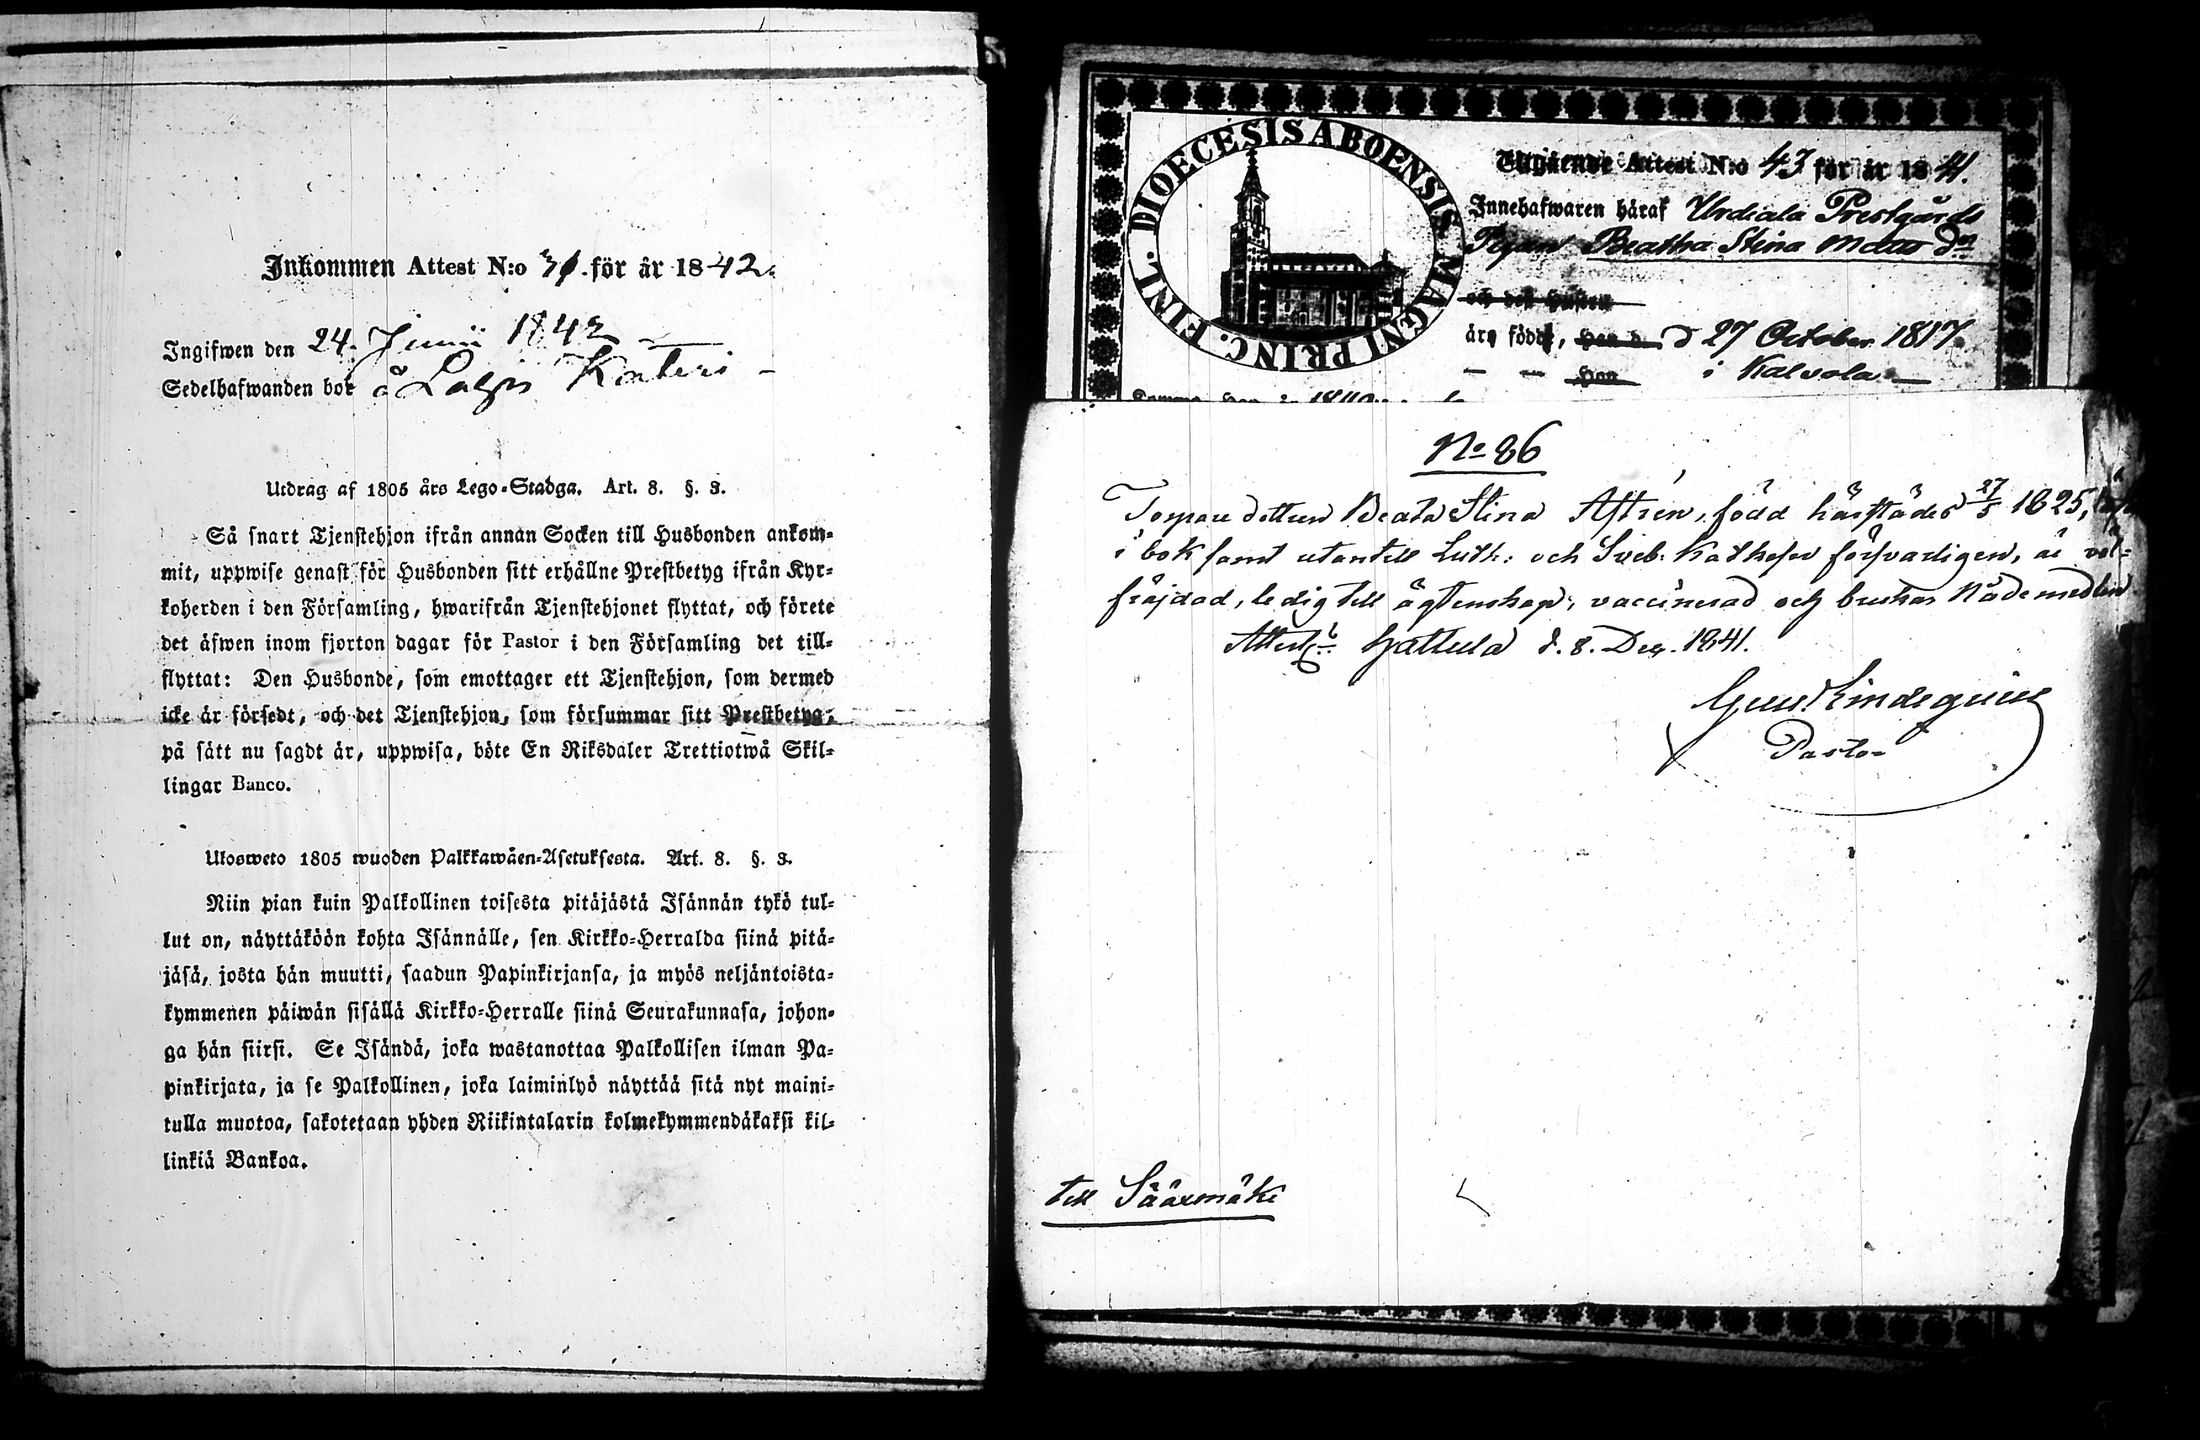 Inkommen Attest N:o 31. för år 1842.
Ingifwen den 24. Junii 1842
Sedelhafwanden bor å Lagis Kateri
Utdrag af 1805 års Lego-Stadga. Art. 8. §. 3.
Så snart Tjenstehjon ifrån annan Socken till Husbonden ankom-
mit, uppwise genast för Husbonden sitt erhållne Prestbetyg ifrån Kyr-
koherden i den Församling, hwarifrån Tjenstehjonet flyttat, och förete
det äfwen inom fjorton dagar för Pastor i den Församling det till-
flyttat: Den Husbonde, som emottager ett Tjenstehjon, som dermed
icke är försedt, och det Tjenstehjon, som försummar sitt Prestbetyg,
på sätt nu sagdt är, uppwisa, böte En Riksdaler Trettiotwå Skil-
lingar Banco.
Ulosweto 1805 wuoden Palkkawäen-Asetuksesta. Art. 8. §. 3.
Niin pian kuin Palkollinen toisesta pitäjästä Isännän tykö tul-
lut on, näyttäköön kohta Isännälle, sen Kirkko-Herralda siinä pitä-
jäsä, josta hän muutti, saadun Papinkirjansa, ja myös neljäntoista-
kymmenen päiwän sisällä Kirkko-Herralle siinä Seurakunnasa, johon-
ga hän siirsi. Se Isändä, joka wastanottaa Palkollisen ilman Pa-
pinkirjata, ja se Palkollinen, joka laiminlyö näyttää sitä nyt maini-
tulla muotoa, sakotetaan yhden Riikintalarin kolmekymmendäkaksi kil-
linkiä Bankoa.
DIOECESIS ABOENSIS MAGNI PRINC. FINL.
Utgående Attest N:o 43 för år 1841.
Innehafwaren häraf Urdiala Prestgårds
Pigan Beatha Stina Mats dr
och des hustru
äro född, Han d. d 27 October 1817
Han i Kalvola
No 86
Torpare dottren Beata Stina Astrén, född härstädes 27/5 1825,
i bok samt utantill Luth: och Sveb: Katheser försvarligen, är väl-
fräjdad, ledig till ägtenskap, vaccinerad och brukar Nådemedlen.
Attest. Hattula d. 8. Dec. 1841.
Gust. Lindequist
Pastor
till Sääxmäki